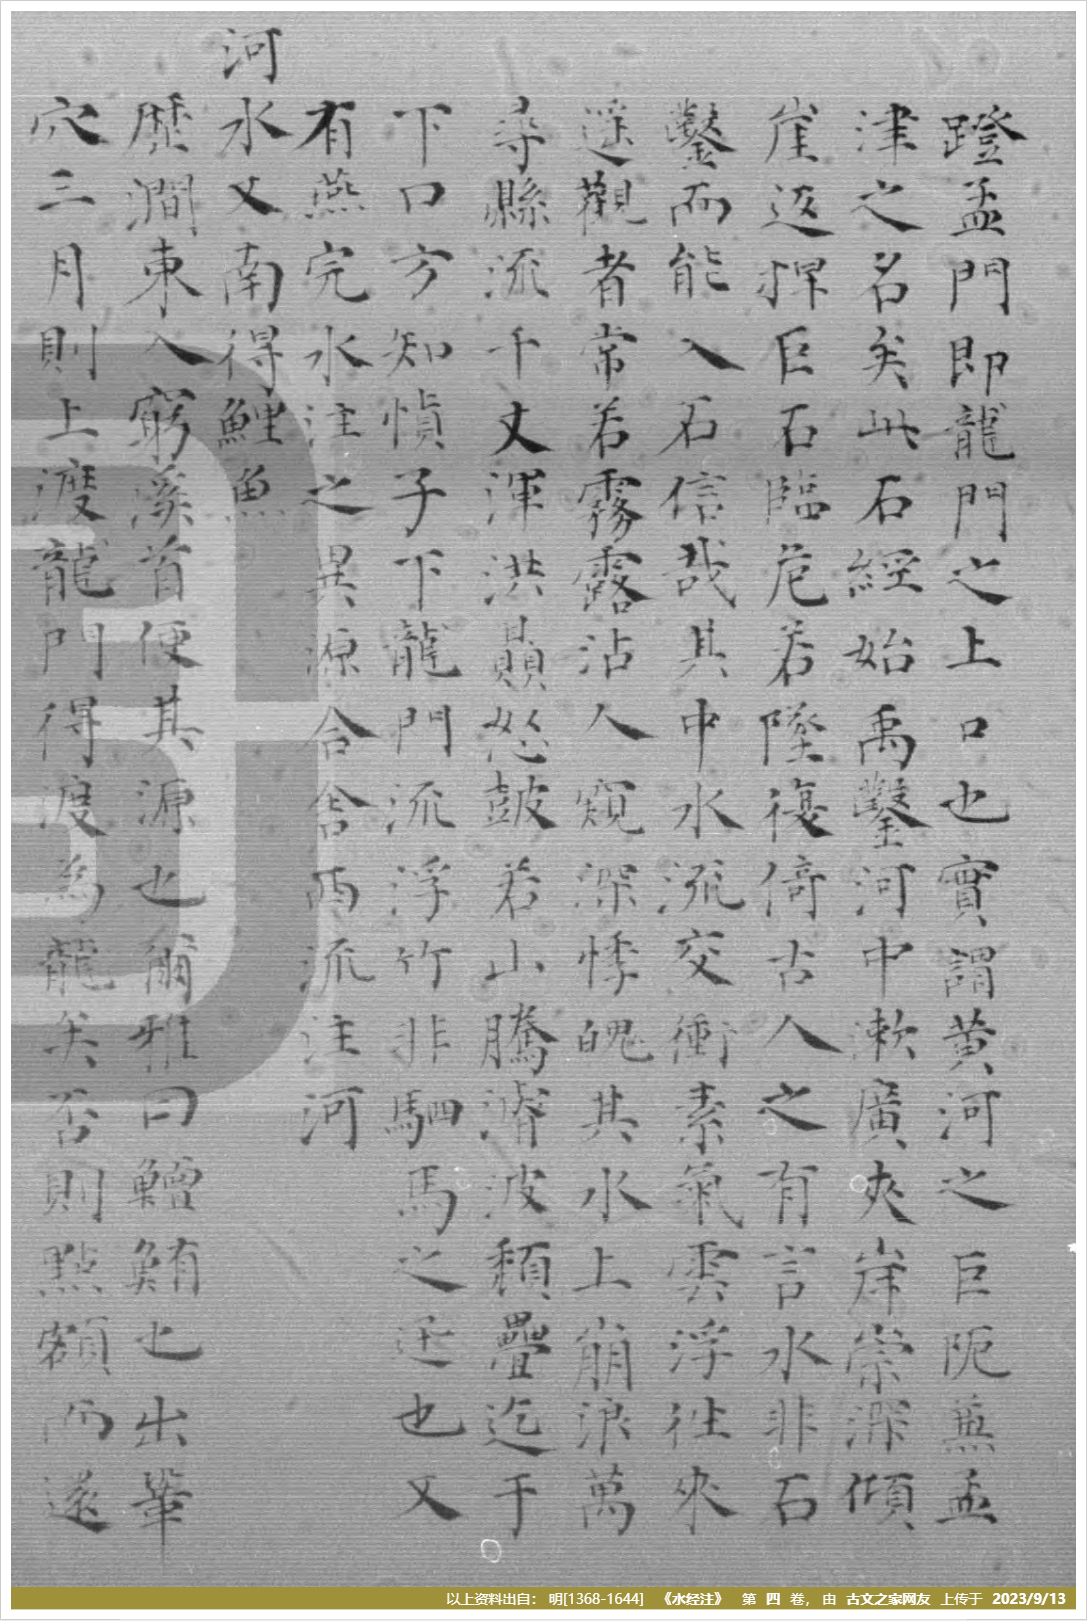 蹬孟門即龍門之上口也實謂黄河之巨阨兼孟
津之名矣此石經始禹鑿河中漱廣夾岸崇深傾
崖返捍巨石臨危若墜復倚古人之有言水非石
鑿而能入石信哉其中水流交衝素氣雲浮徃來
遥觀者常若霧露沾人窺深悸魄其水上崩浪萬
尋縣流千丈渾洪贔怒鼓若山騰濬波頹疊迄于
下口方知慎子下龍門流浮竹非駟馬之迋也又
有燕完水注之異源合舍西流注河
河水又南得鯉魚
歴澗東入窮溪首便其源也爾雅曰鱣鮪也出鞏
穴三月則上渡龍門得渡為龍矣否則點額而還
以上资料出自： 明[1368-1644] 《水经注》 第 四 卷， 由 古文之家网友 上传于 2023/9/13